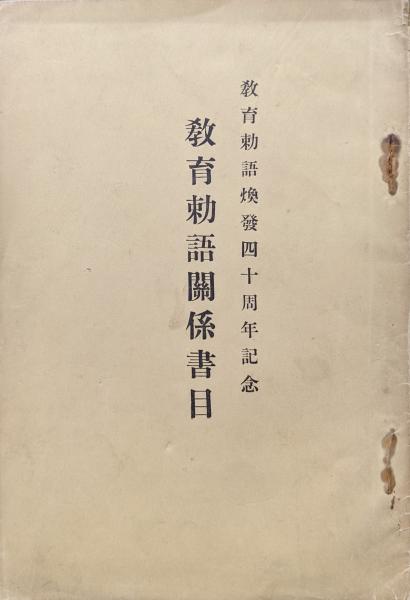 教育勅語煥發四十周年記念
教育勅語關係書目